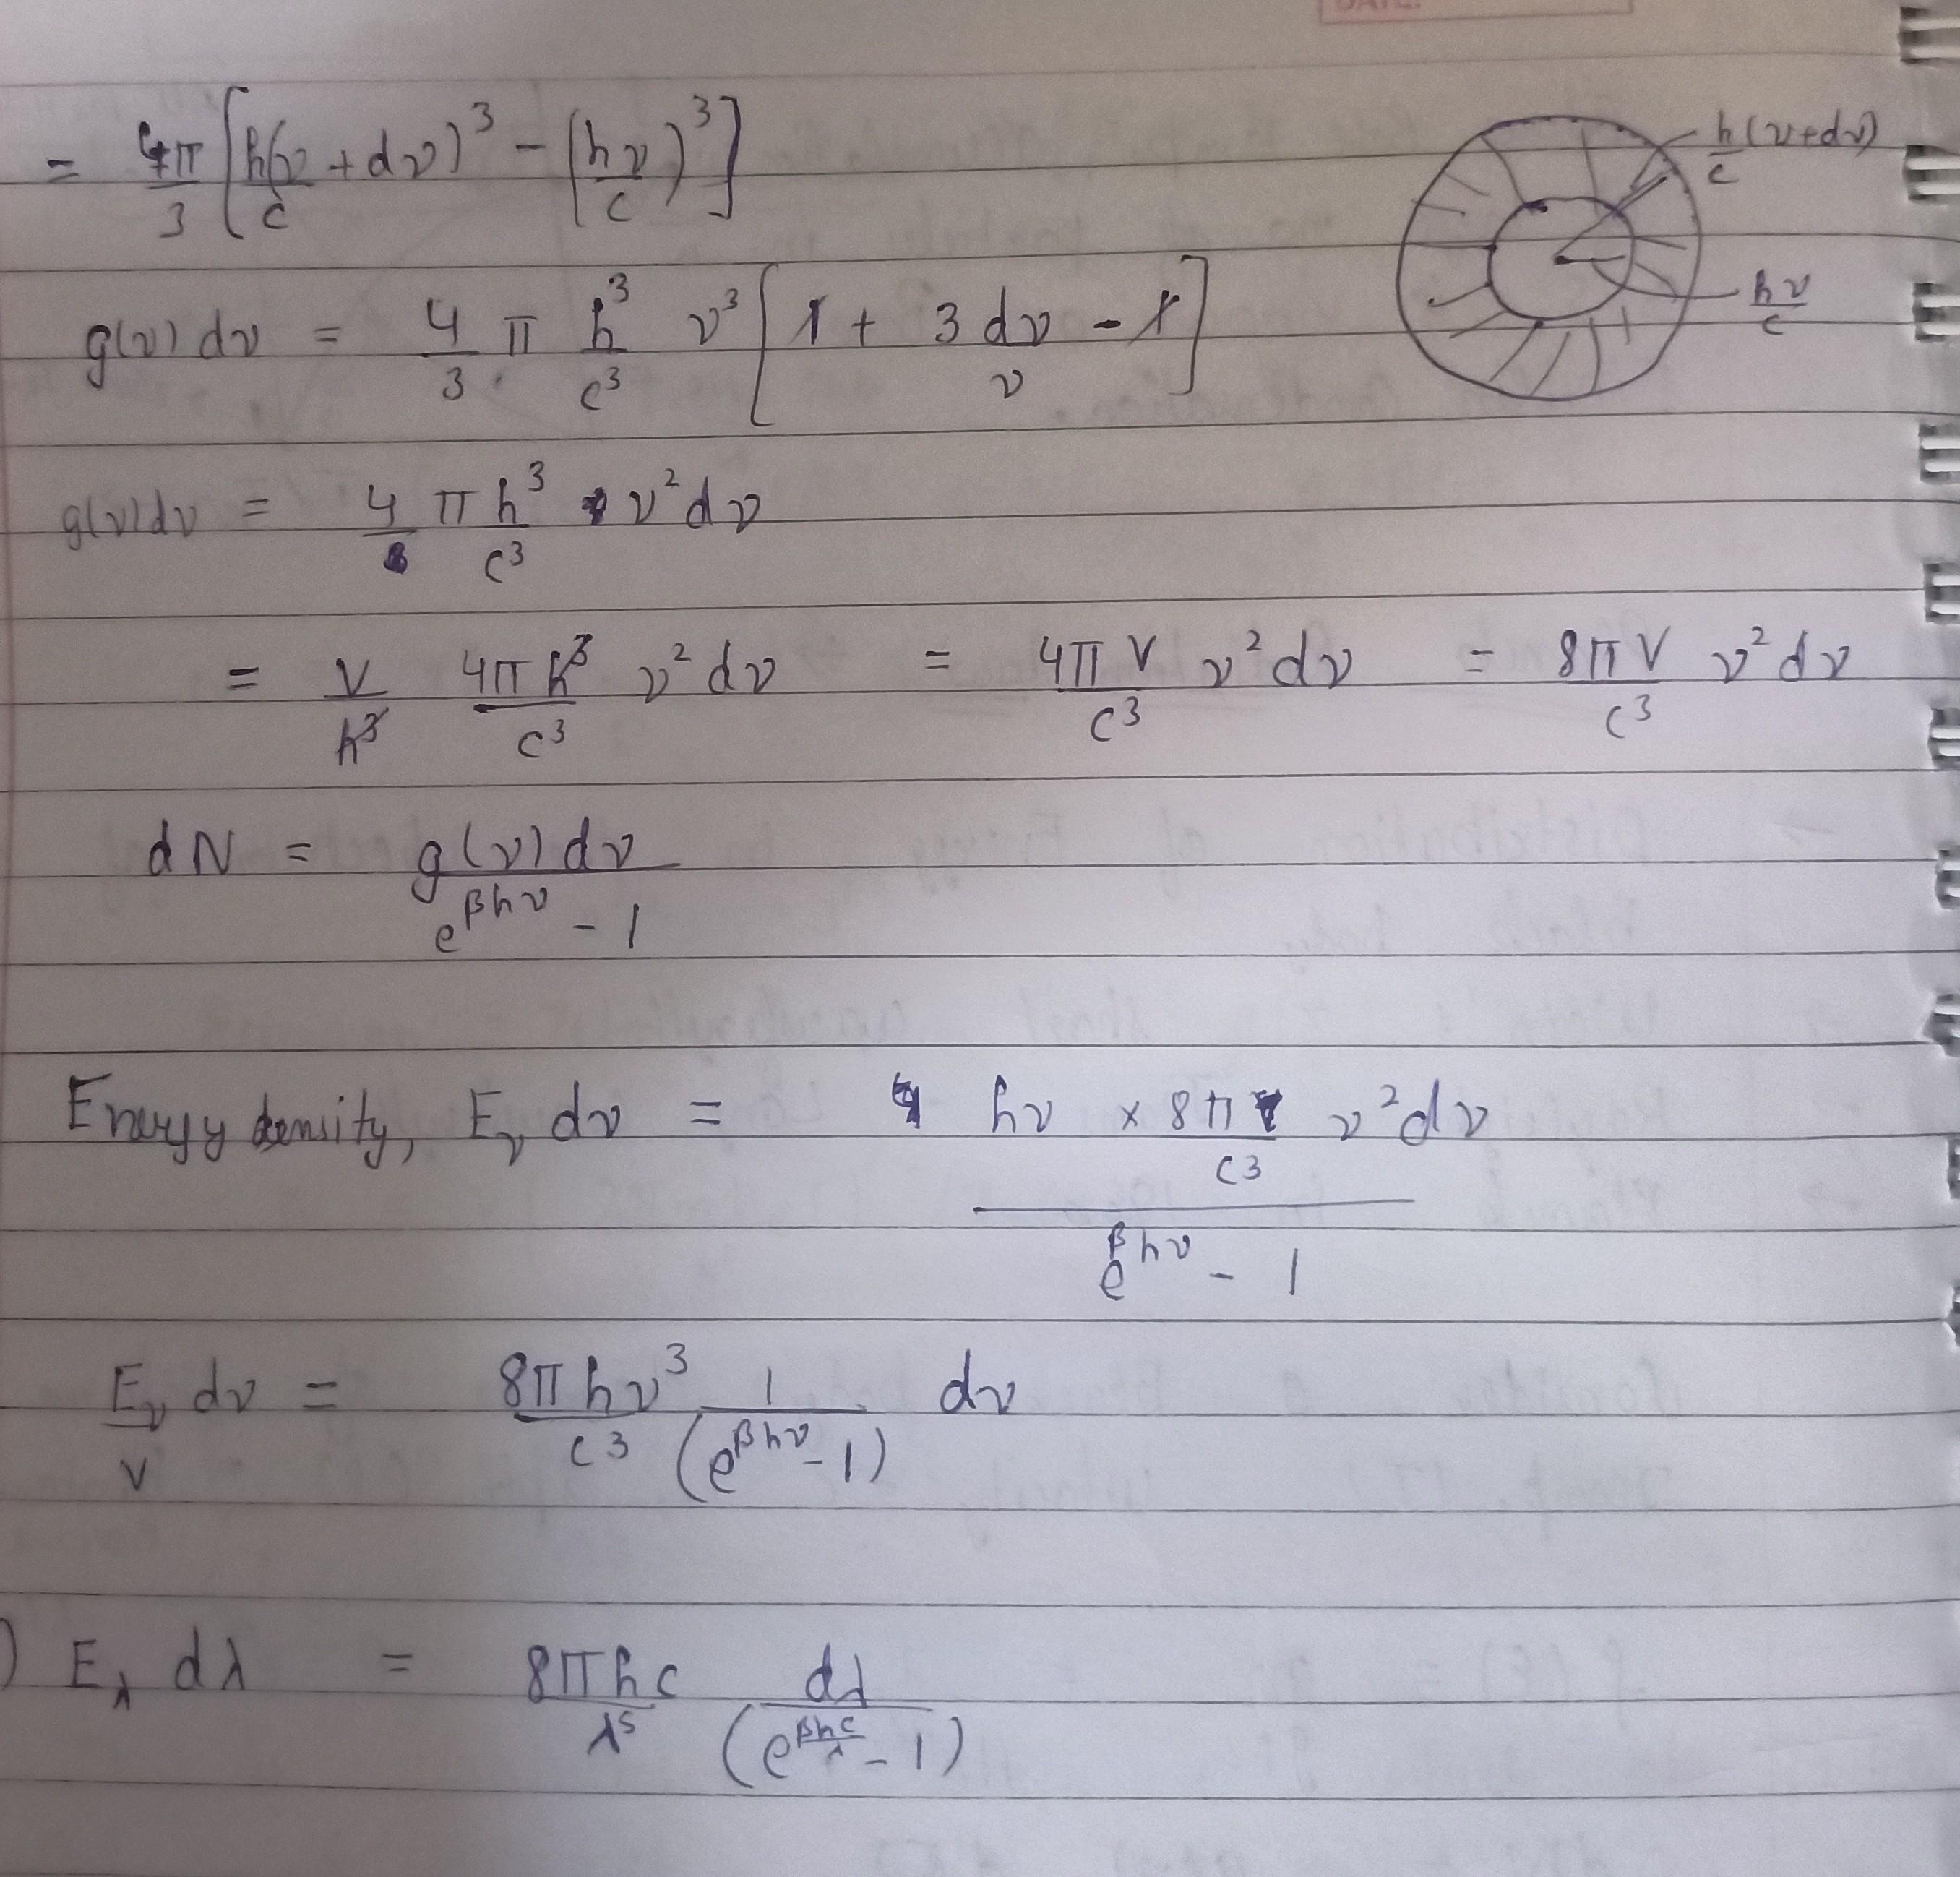 DATE:
= 4π/3 [h(ν + dν)/c)^3 - (hν/c)^3]
h/c (ν+dν)
hν/c
g(ν) dν = 4/3 π h^3/c^3 ν^3 [1 + 3 dν/ν - 1]
g(ν)dν = 4 π h^3/c^3 ν^2 dν
= V/h^3 4π h^3/c^3 ν^2 dν = 4π V/c^3 ν^2 dν = 8π V/c^3 ν^2 dν
dN = g(ν) dν / e^βhν - 1
Energy density, E_ν dν = hν × 8π/c^3 ν^2 dν / e^βhν - 1
E_ν/V dν = 8πhν^3/c^3 1/(e^βhν - 1) dν
) E_λ dλ = 8πhc/λ^5 dλ/(e^βhc/λ - 1)